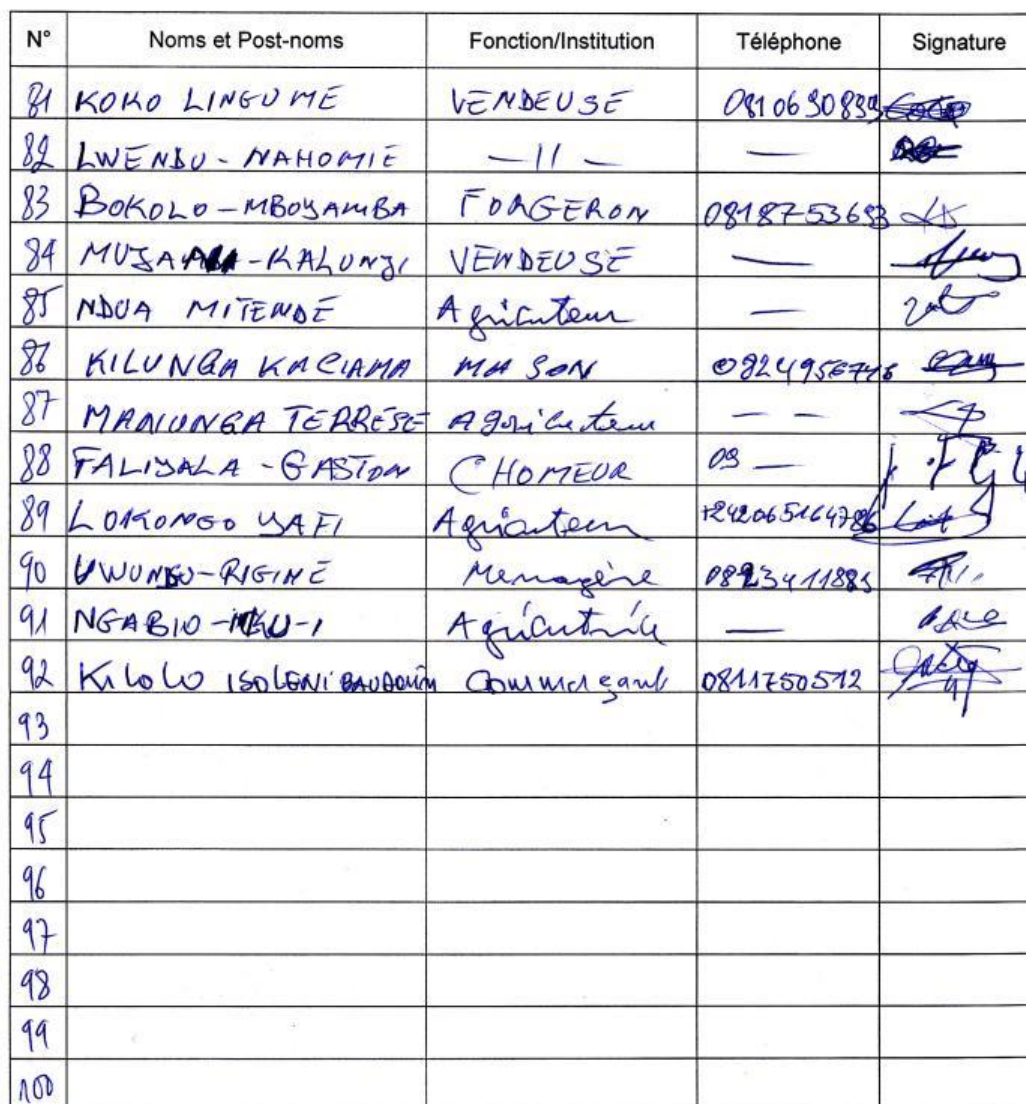 N° Noms et Post-noms Fonction/Institution Téléphone Signature
81 KOKO LINGUME VENDEUSE 0810630839
82 LWENDU - NAHOMIE — 11 — —
83 BOKOLO - MBOYAMBA FORGERON 0818753693
84 KALUNJI VENDEUSE —
85 NDUA MITENDE Agricuteur —
86 KILUNGA MASON
87 TERRESE Agricuteur — —
88 FALIYALA - GASTON CHOMEUR 09 —
89 LOKONGO YAFI Agricuteur +242065164786
90 RIGINE Menagère
91 NGABIO Agricutrice —
92 KiloLO ISOLENI BAUDOUIN Commerçant 0811750512
93
94
95
96
97
98
99
100